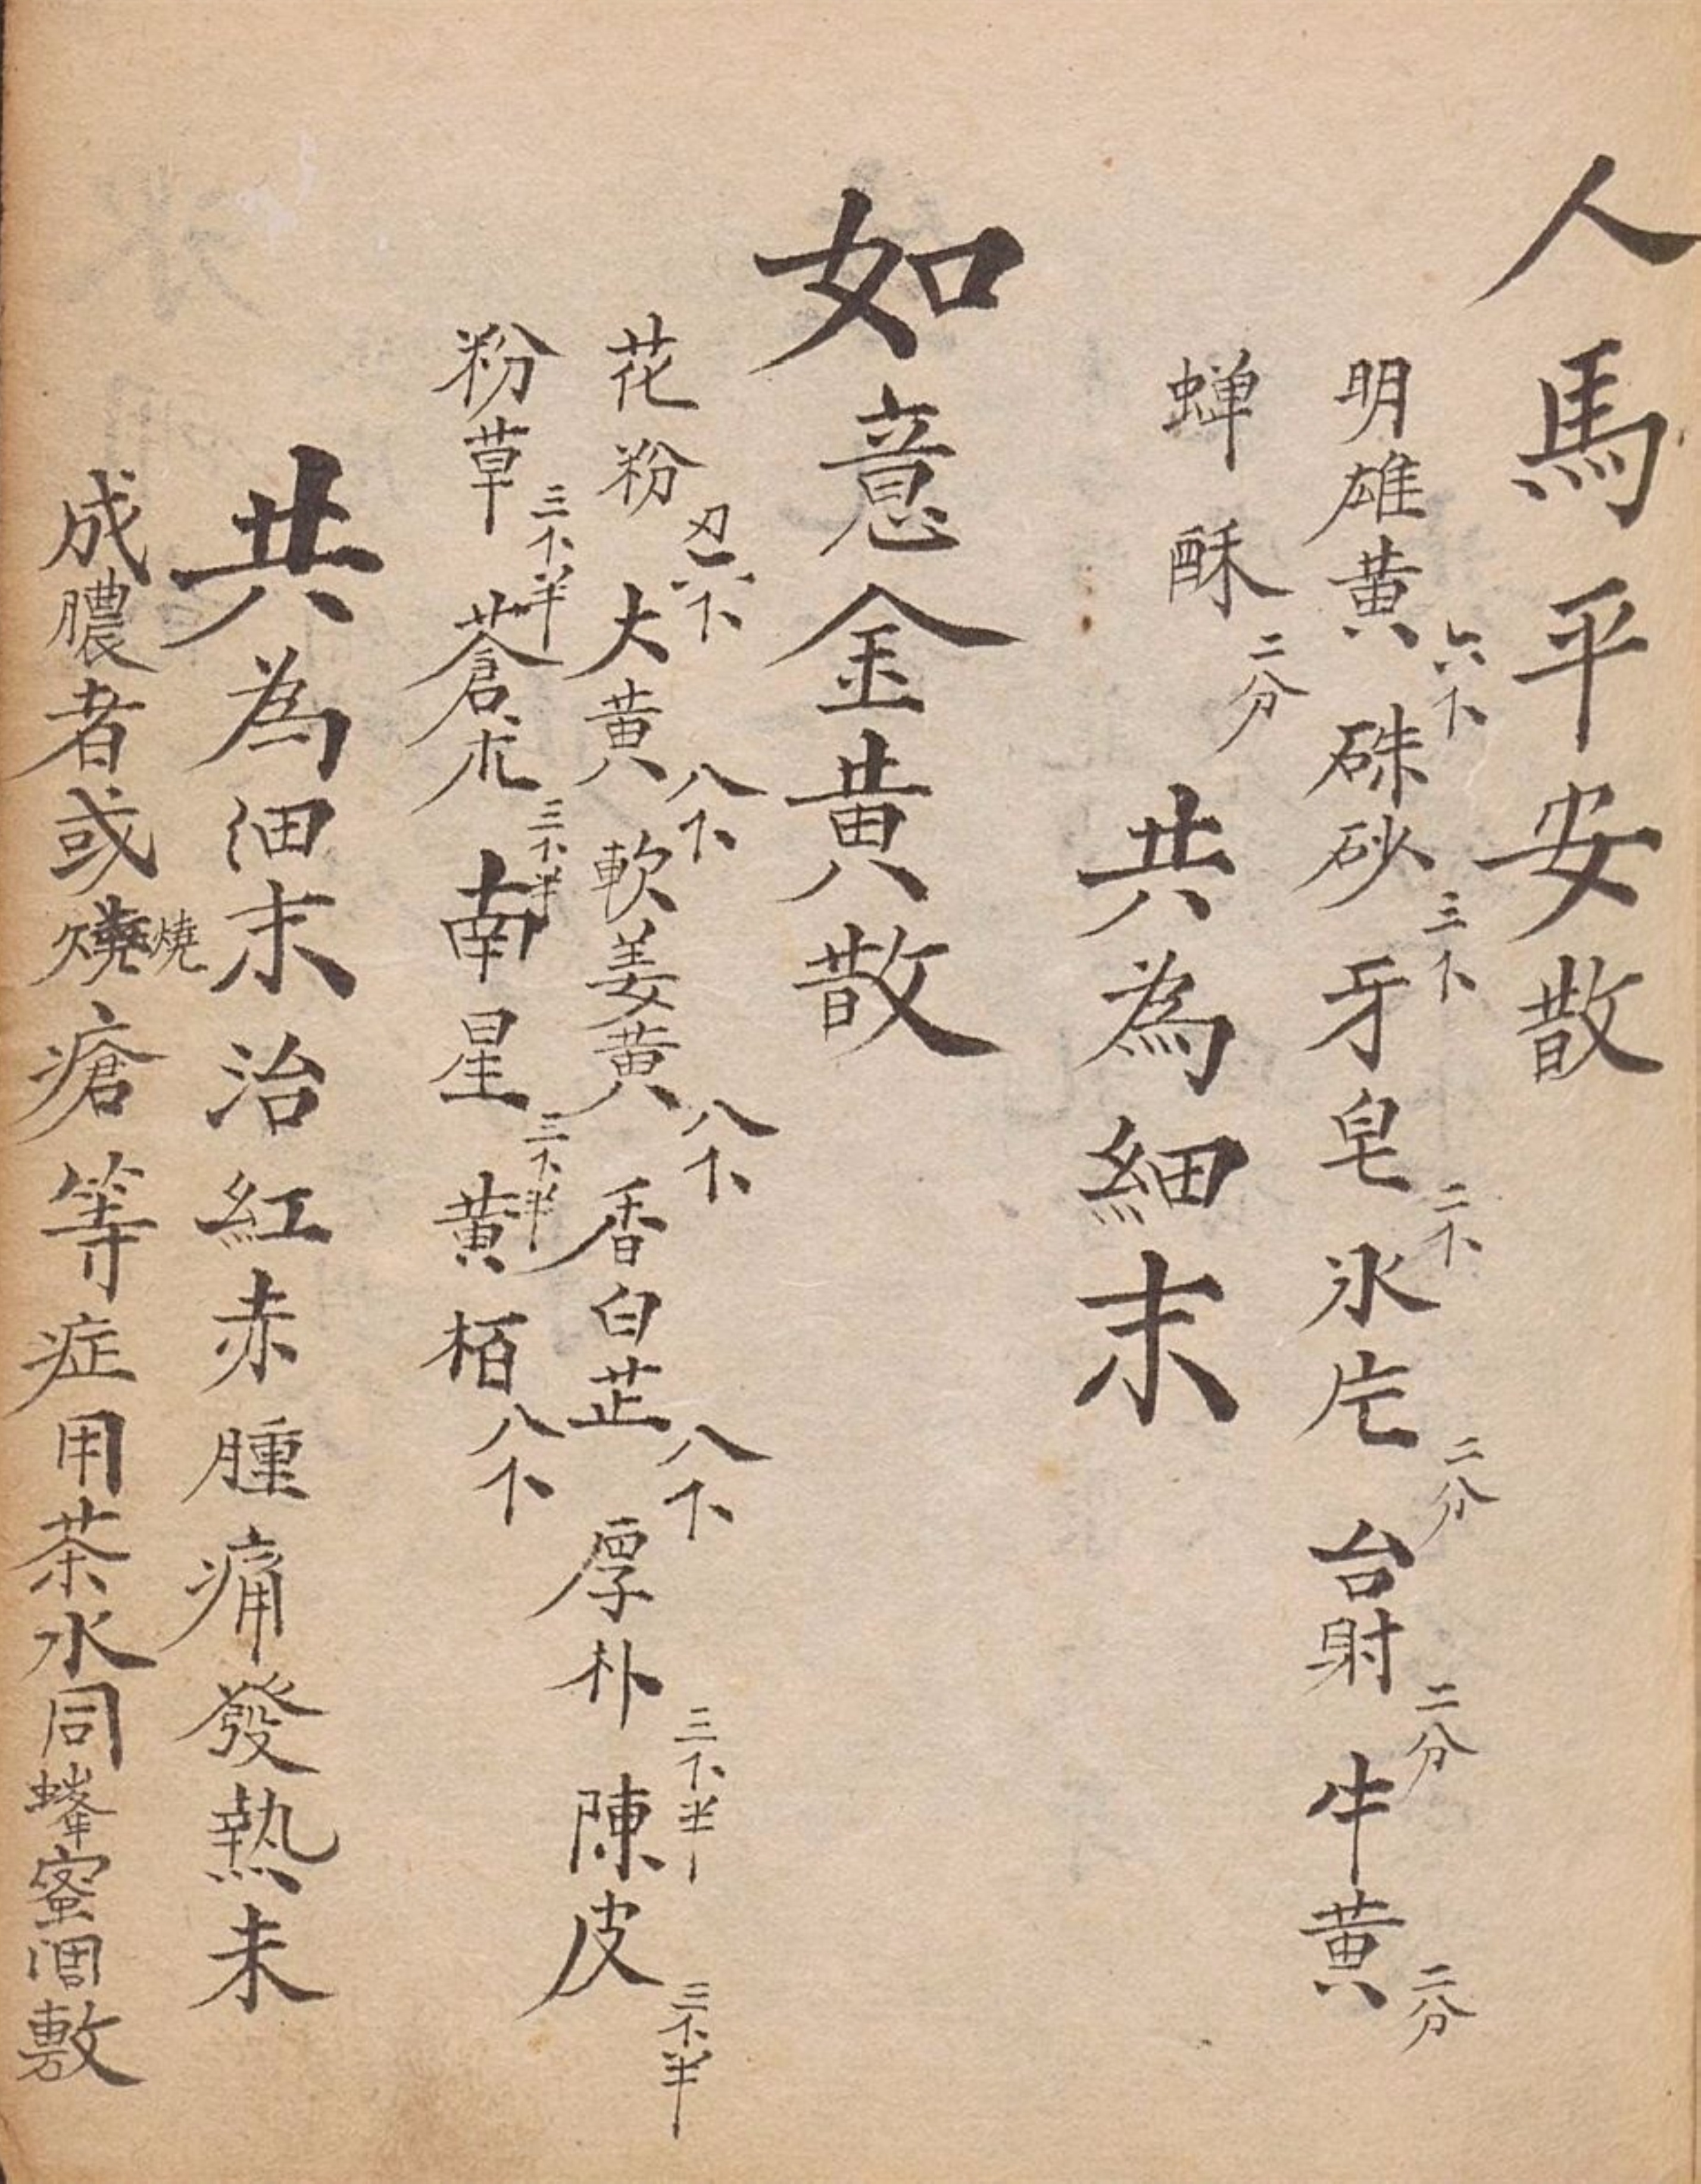 人馬平安散
明雄黃六个硃砂三个牙皂二个氷片二分台射二分牛黃二分
蟬酥二分
共為細末
如意金黄散
花粉刄一六个大黄八个軟姜黄八个香白芷八个厚朴三个半陳皮三个半
粉草三个半蒼朮三个半南星三个半黄栢八个
共為细末治紅赤腫痛發熱未
成膿者或燒燒瘡等症用茶水同蜂蜜调敷